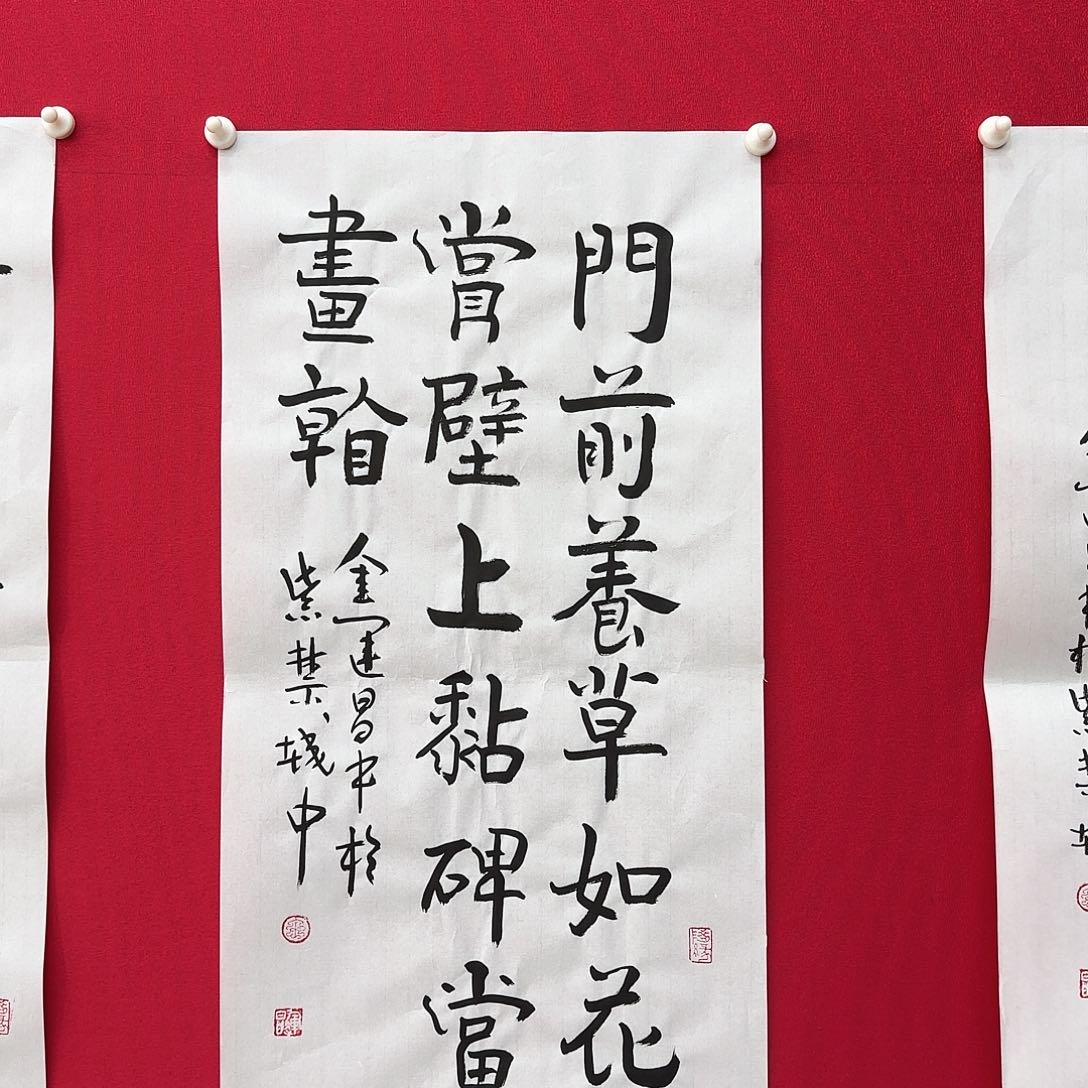 門前養草如花
賞壁上黏碑當
畫看
金運昌書於
紫禁城中